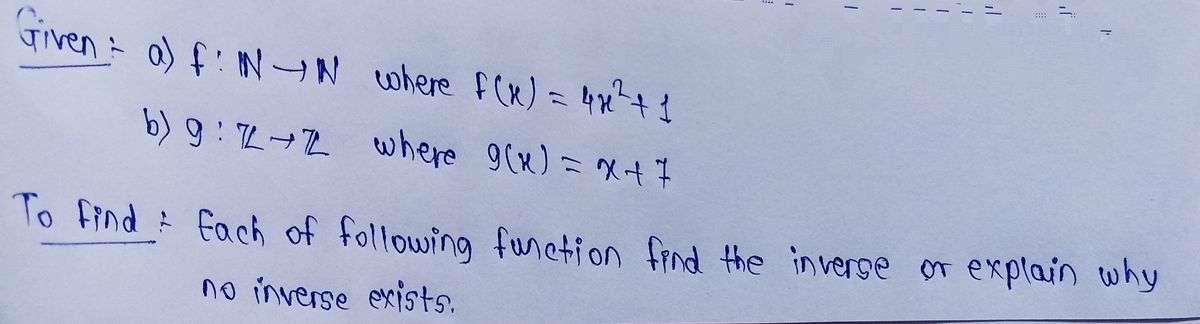 Given :- a) f : ℕ → ℕ where f(x) = 4x² + 1
b) g : ℤ → ℤ where g(x) = x + 7
To find :- Each of following function find the inverse or explain why
no inverse exists.